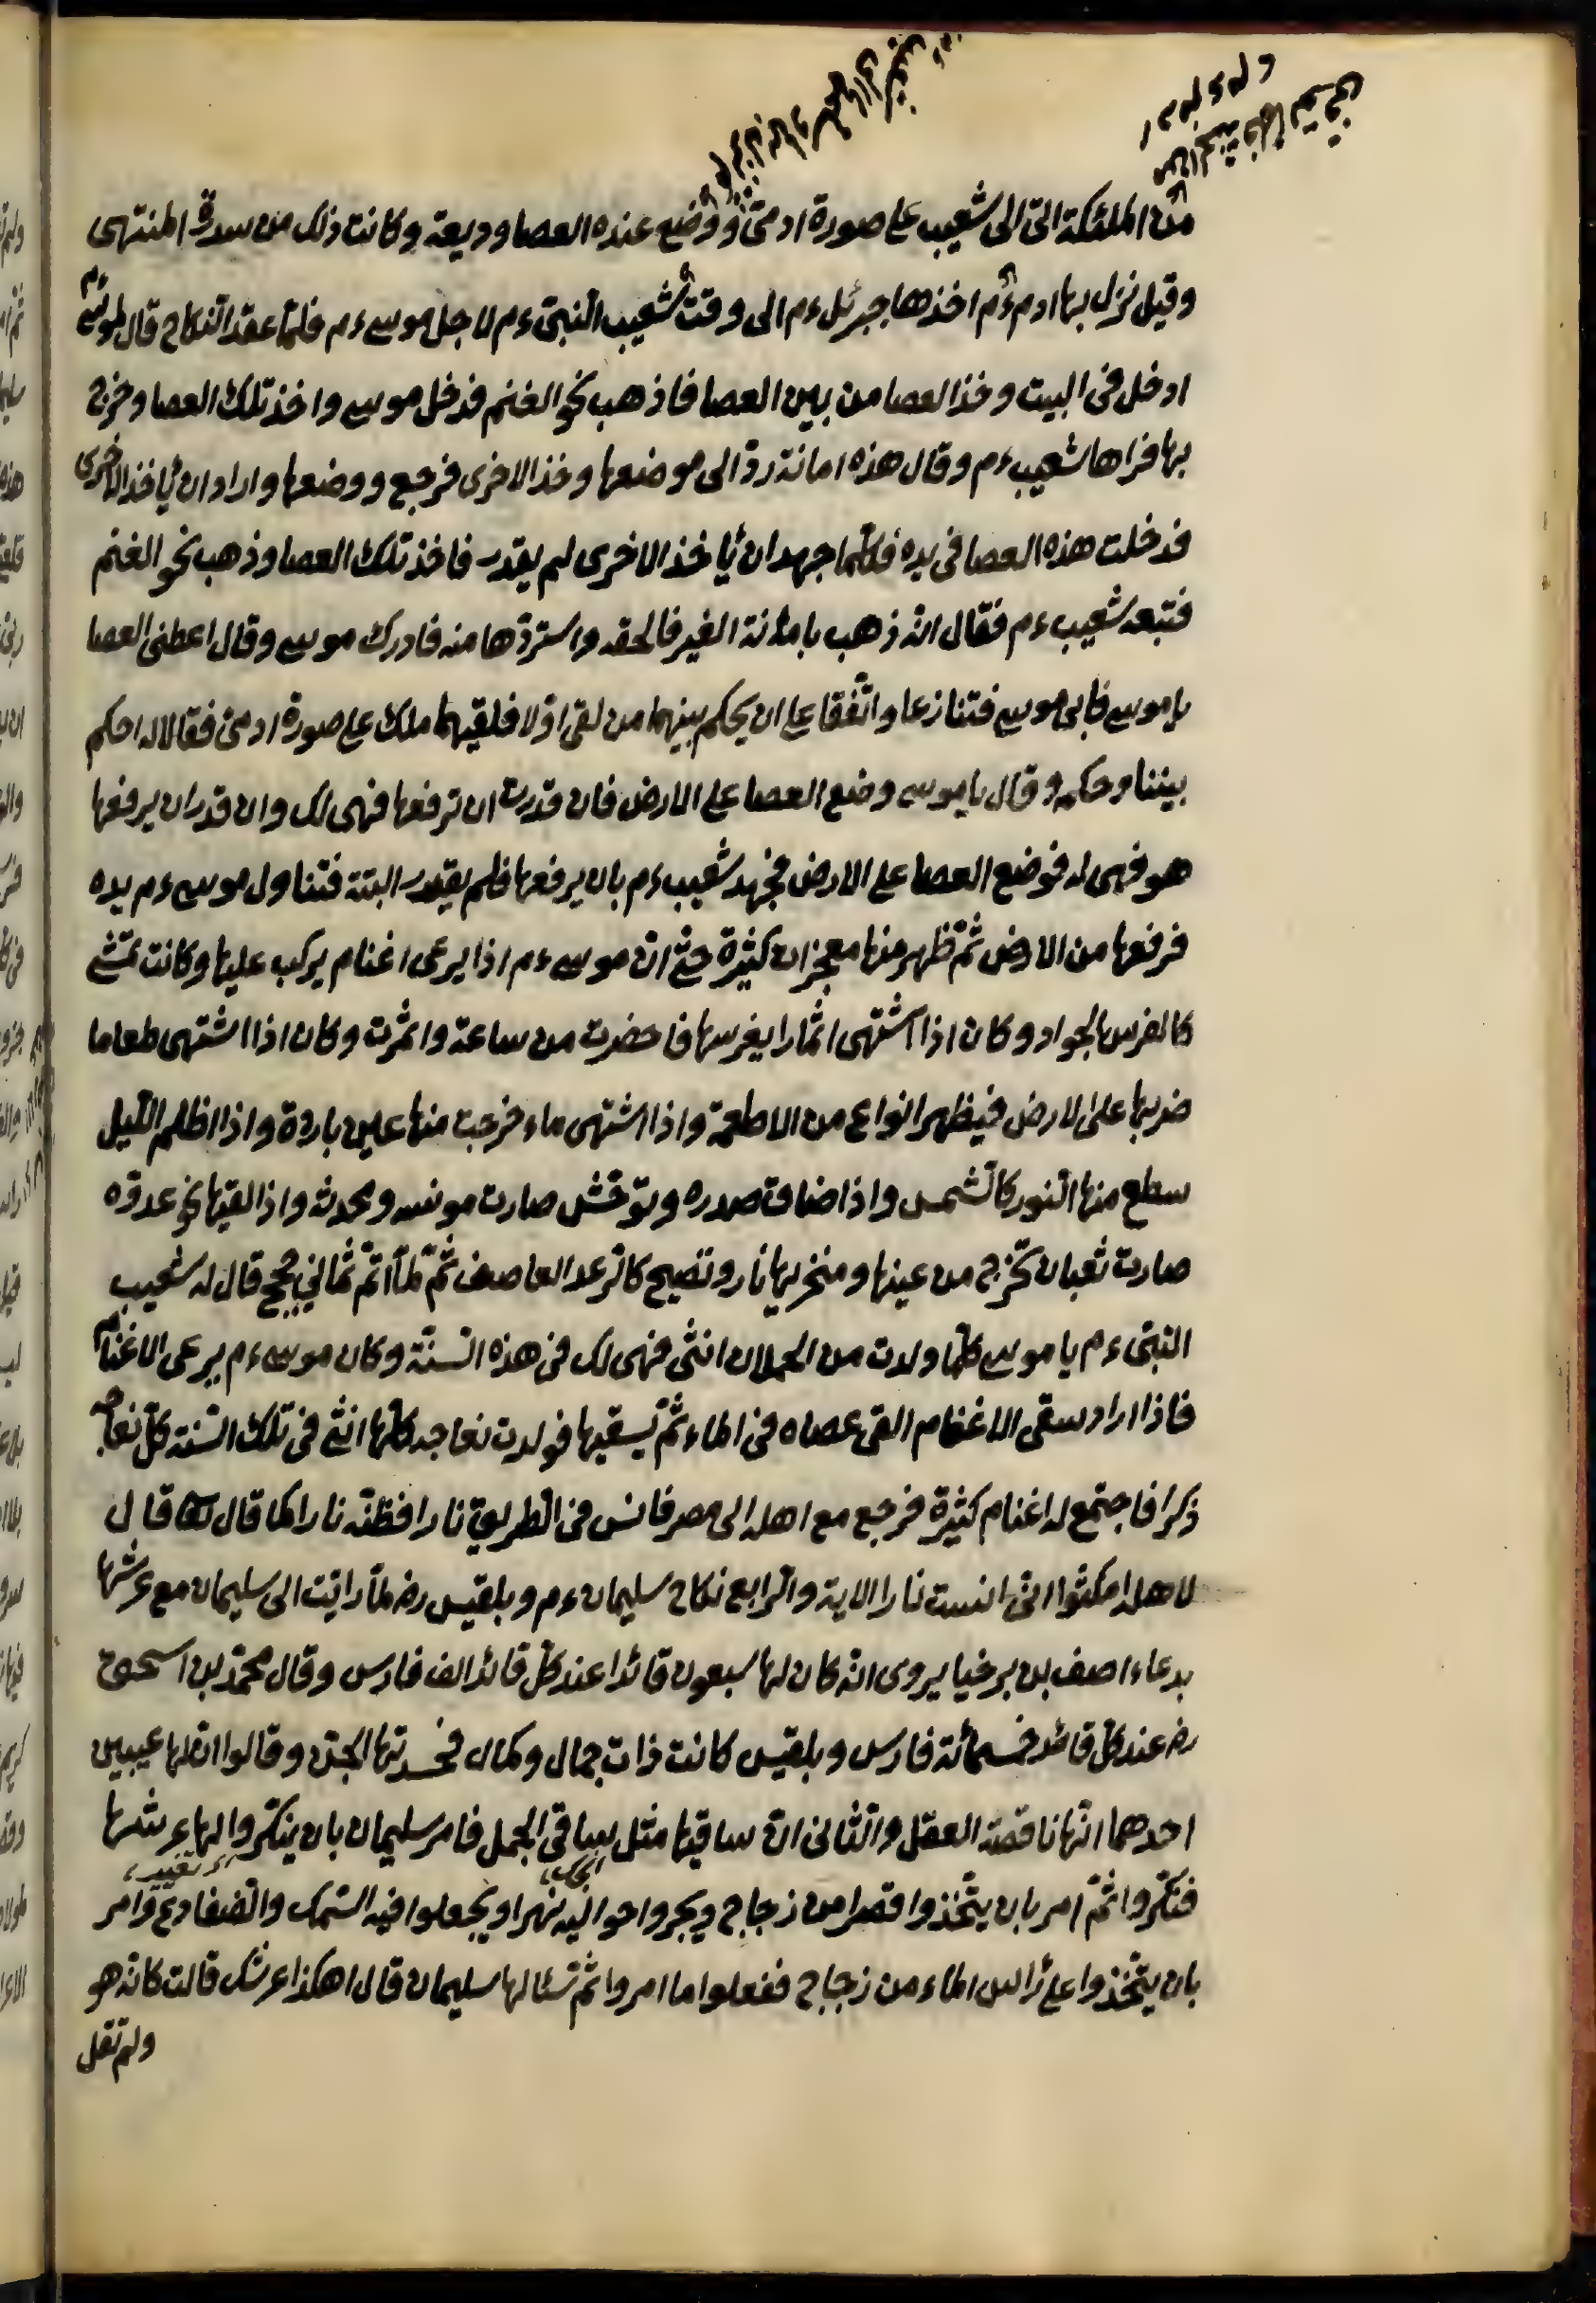 من الملئكة اتى الى شعيب على صورة ادمى ووضع عنده العصا وديعة وكانت ذلك من سدرة المنتهى
وقيل نزل بها ادم ءم اخذها جبرئل ءم الى وقت شعيب النبى ءم لاجل موسى ءم فلما عقد النكاح قال لموسى ءم
ادخل فى البيت وخذ العصا من بين العصا فاذهب نحو الغنم فدخل موسى واخذ تلك العصا وخرج
بها فراها شعيب ءم وقال هذه امانة رد الى موضعها وخذ الاخرى فرجع ووضعها واراد ان يأخذ الاخرى
فدخلت هذه العصا فى يده فكلما جهد ان يأخذ الاخرى لم يقدر فاخذ تلك العصا وذهب نحو الغنم
فتبعه شعيب ءم فقال انه ذهب بامانة الغير فالحقه واستردها منه فادرك موسى وقال اعطنى العصا
يا موسى فابى موسى فتنازعا واتفقا على ان يحكم بينهما من لقى اولا فلقيهما ملك على صورة ادمى فقالا له احكم
بيننا وحكم وقال يا موسى وضع العصا على الارض فان قدرت ان ترفعها فهى لك وان قدر ان يرفعها
هو فهى له فوضع العصا على الارض فجهد شعيب ءم بان يرفعها فلم يقدر البتة فتناول موسى ءم يده
فرفعها من الارض ثم ظهر منها معجزات كثيرة حتى ان موسى ءم اذا يرعى اغنام يركب عليها وكانت تمشى
كالفرس الجواد وكان اذا اشتهى اثمارا يغرسها فاحضرت من ساعة واثمرت وكان اذا اشتهى طعاما
ضربها على الارض فيظهر انواع من الاطعمة واذا اشتهى ماء خرجت منها عين باردة واذا اظلم الليل
سطع منها النور كالشمس واذا ضاق صدره وتوحش صارت مونسه ومحدثه واذا لقيها نحو عدوه
صارت ثعبان تخرج من عينها ومنخريها نار وتصيح كالرعد العاصف ثم لما اتم ثمانى حجج قال له شعيب
النبى ءم يا موسى كلما ولدت من الحملان انثى فهى لك فى هذه السنة وكان موسى ءم يرعى الاغنام
فاذا اراد سقى الاغنام القى عصاه فى الماء ثم يسقيها فولدت نعاجه كلها انثى فى تلك السنة كل نعاجه
ذكرا فاجتمع له اغنام كثيرة فرجع مع اهله الى مصر فانس فى الطريق نارا فظنه نارا كما قال قال
لاهله امكثوا انى انست نارا الاية والرابع نكاح سليمان ءم وبلقيس رض لما راتيت الى سليمان مع عرشها
بدعاء اصف بن برخيا يروى انه كان لها سبعون قائدا عند كل قائد الف فارس وقال محمد بن اسحق
رض عند كل قائد خمسمائة فارس وبلقيس كانت ذات جمال وكمال فحسدتها الجن وقالوا ان لها عيبين
احدهما انها ناقصة العقل والثانى ان ساقيها مثل ساقى الجمل فامر سليمان بان ينكروا لها عرشها
فنكروا ثم امر بان يتخذوا قصرا من زجاج ويجروا حواليه نهرا ويجعلوا فيه السمك والضفادع وامر
بان يتخذوا على رأس الماء من زجاج ففعلوا ما امروا ثم سئالها سليمان قال اهكذا عرشك قالت كانه هو
ولم تقل